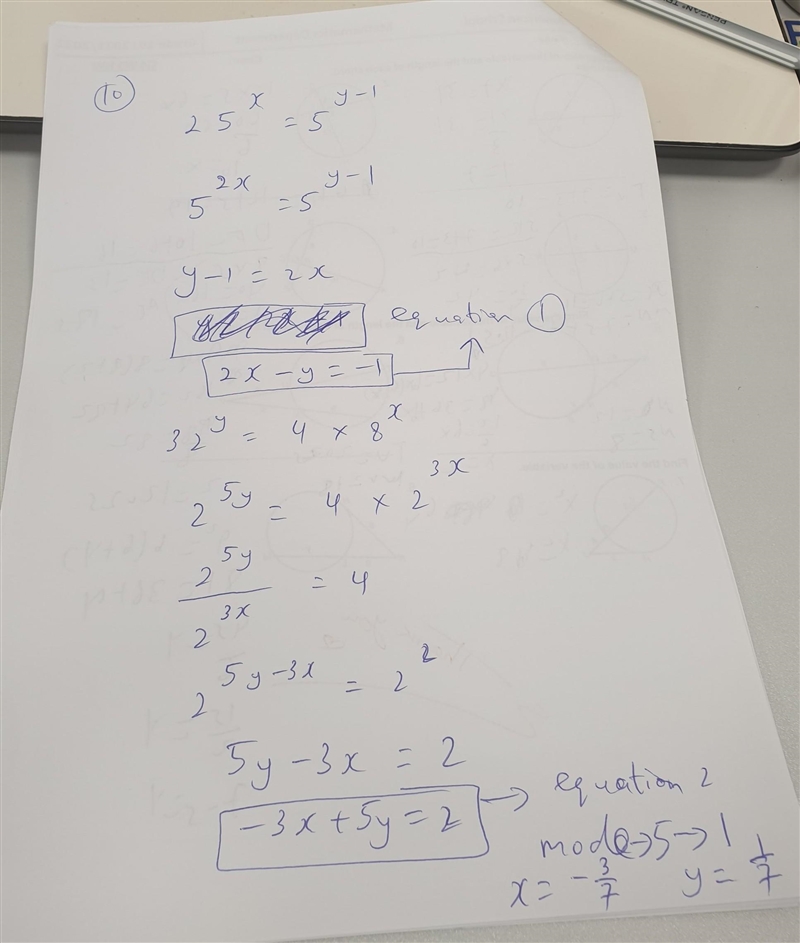 10
25^x = 5^(y-1)
5^(2x) = 5^(y-1)
y-1 = 2x
equation 1
2x - y = -1
32^y = 4 × 8^x
2^(5y) = 4 × 2^(3x)
2^(5y) / 2^(3x) = 4
2^(5y-3x) = 2^2
5y - 3x = 2
-3x + 5y = 2 → equation 2
mode → 5 → 1
x = -3/7 y = 1/7